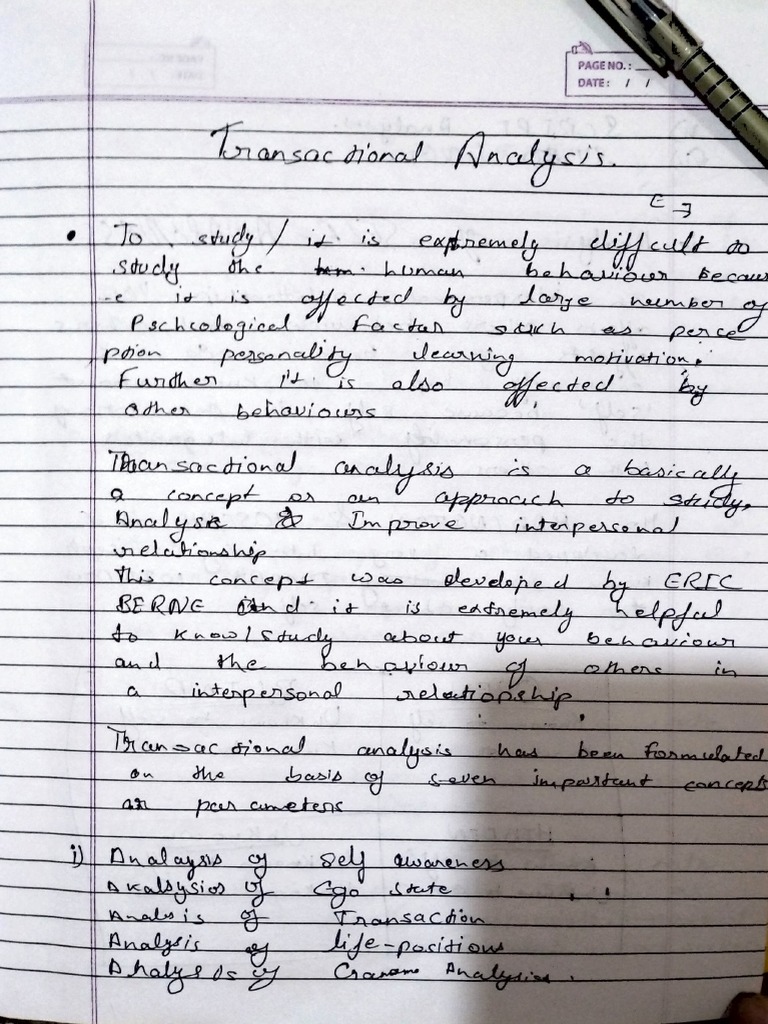 PAGE NO.:
DATE: / /
Transactional Analysis.
• To study / it is extremely difficult to
study the human behaviour becaus
e it is affected by large number of
Pschcological Factor such as perce
ption personality learning motivation.
Further it is also affected by
other behaviours
Transactional analysis is a basically
a concept or an approach to study,
Analyse & Improve interpersonal
relationship
This concept was developed by ERIC
BERNE And it is extremely helpful
to know/study about your behaviour
and the behaviour of others in
a interpersonal relationship
Transactional analysis has been formulated
on the basis of seven important concepts
or parameters
i) Analaysis of self awareness
Analsysios of Ego state
Analsis of Transaction
Analysis of life-positions
Analysis of Analysis.